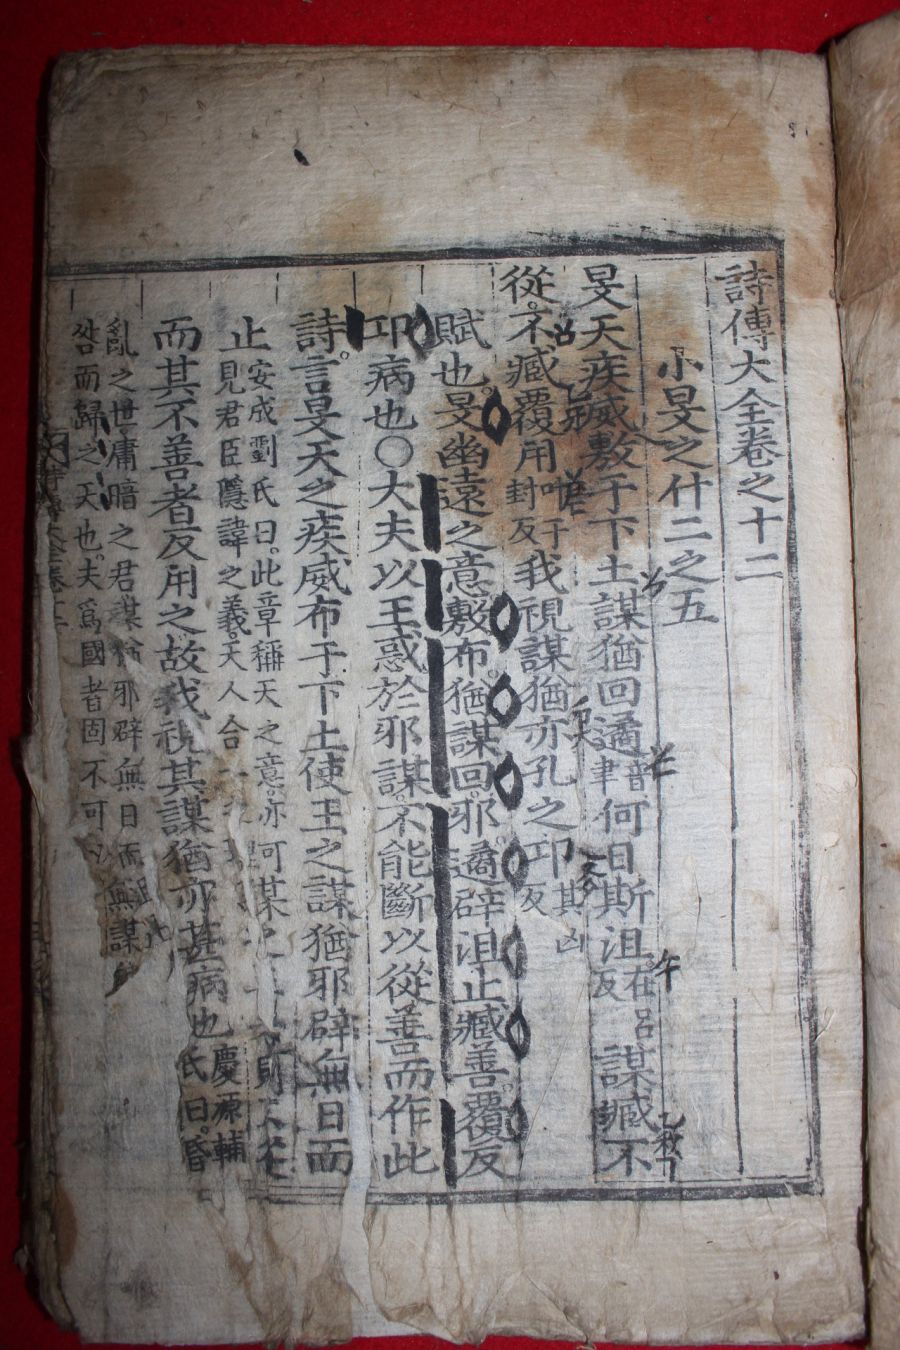 詩傳大全卷之十二
小旻之什二之五
旻天疾威敷于下土謀猶回遹音聿何日斯沮在呂反謀臧不
從不臧覆用叶于封反我視謀猶亦孔之邛其凶反
賦也旻幽遠之意敷布猶謀回邪遹辟沮止臧善覆反
邛病也○大夫以王惑於邪謀不能斷以從善而作此
詩言旻天之疾威布于下土使王之謀猶邪辟無日而
止安成劉氏曰此章稱天之意亦可
見君臣隱諱之義天人合
而其不善者反用之故我視其謀猶亦甚病也慶源輔
氏曰昏
亂之世庸暗之君謀猶邪辟無日而
咎而歸之天也夫爲國者固不可以無謀